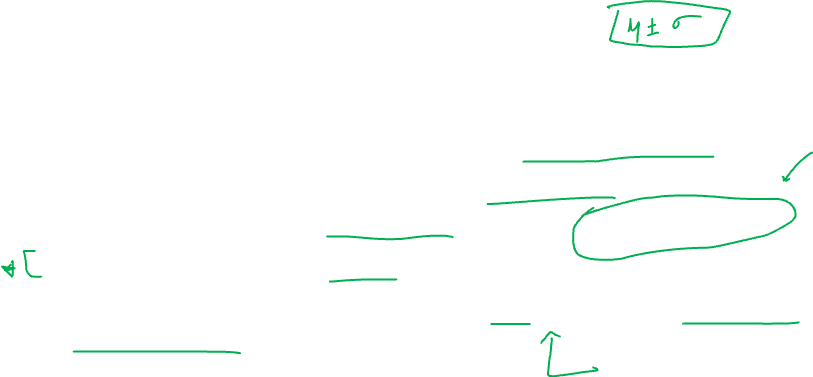 μ ± σ